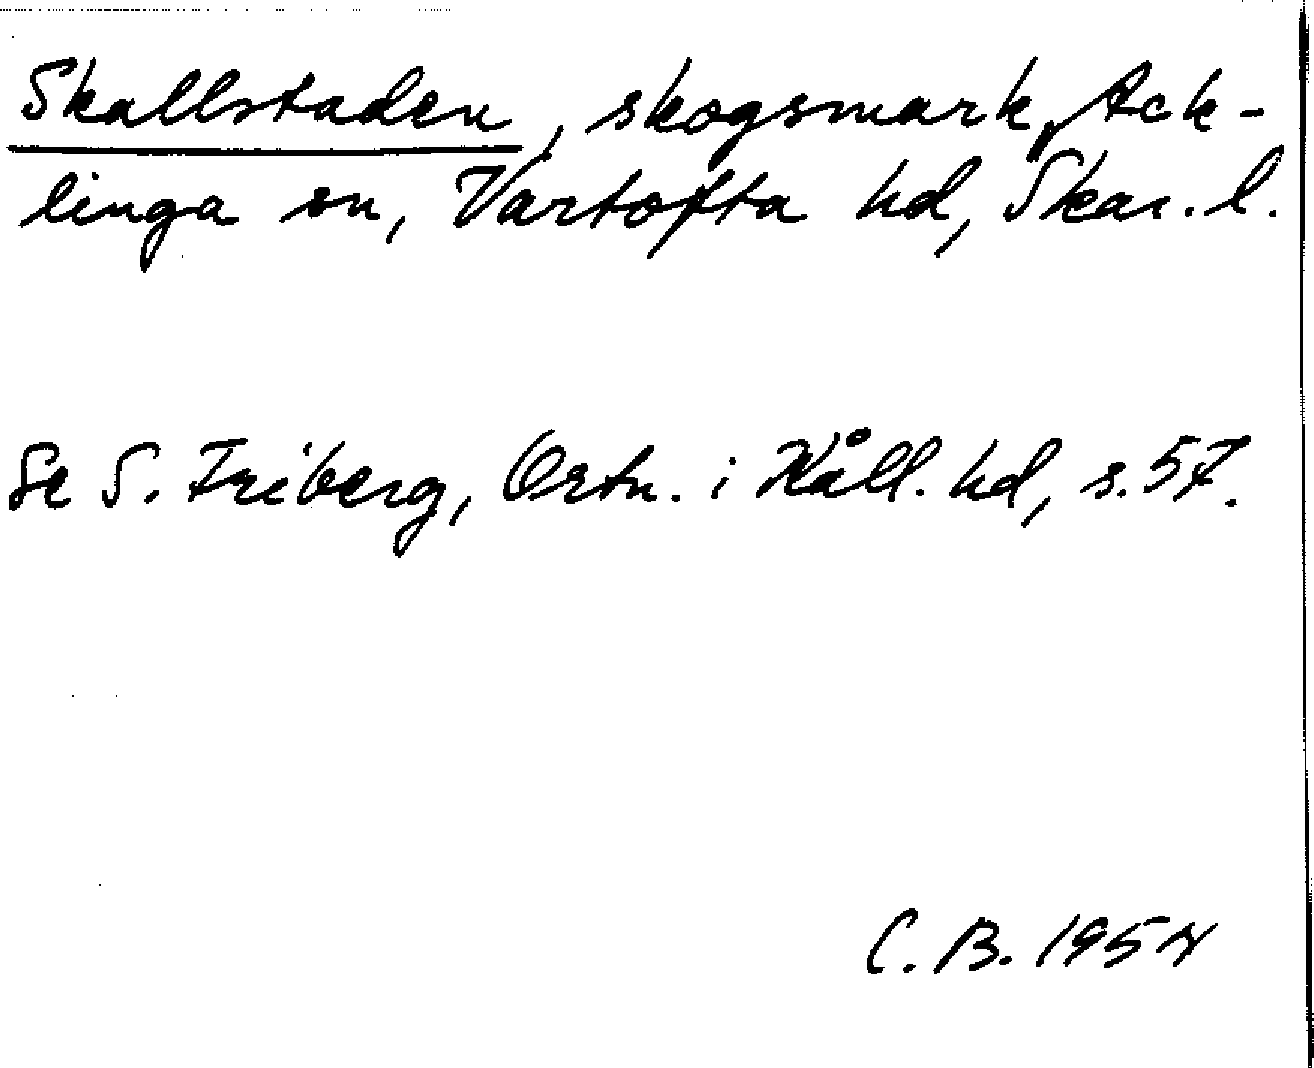 Skallstaden, skogsmark, Ack-
linga sn, Vartofta hd, Skar. l.
Se S. Friberg, Ortn. i Kåll. hd, s. 57.
C. B.